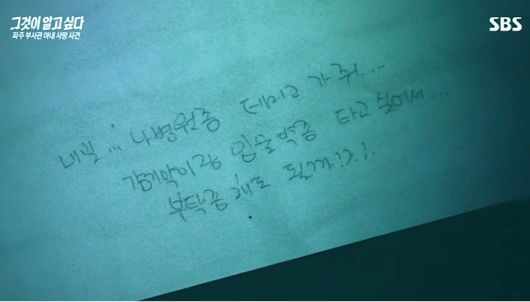 그것이 알고 싶다
파주 부사관 아내 사망 사건
SBS
내일... 나 병원좀 데리고 가줘...
감기약이랑 입술약좀 타고 싶어서....
부탁좀 해도 될까?!?!.